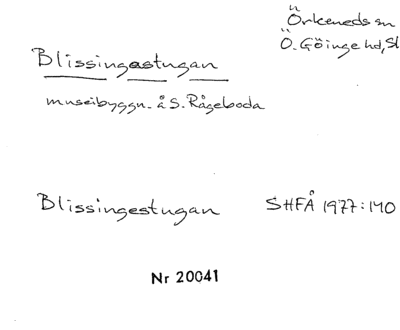 Örkeneds sn
Ö. Göinge hd, Sk
Blissingastugan
museibyggn. å S. Rågeboda
Blissingestugan SHFÅ 1977:140
Nr 20041